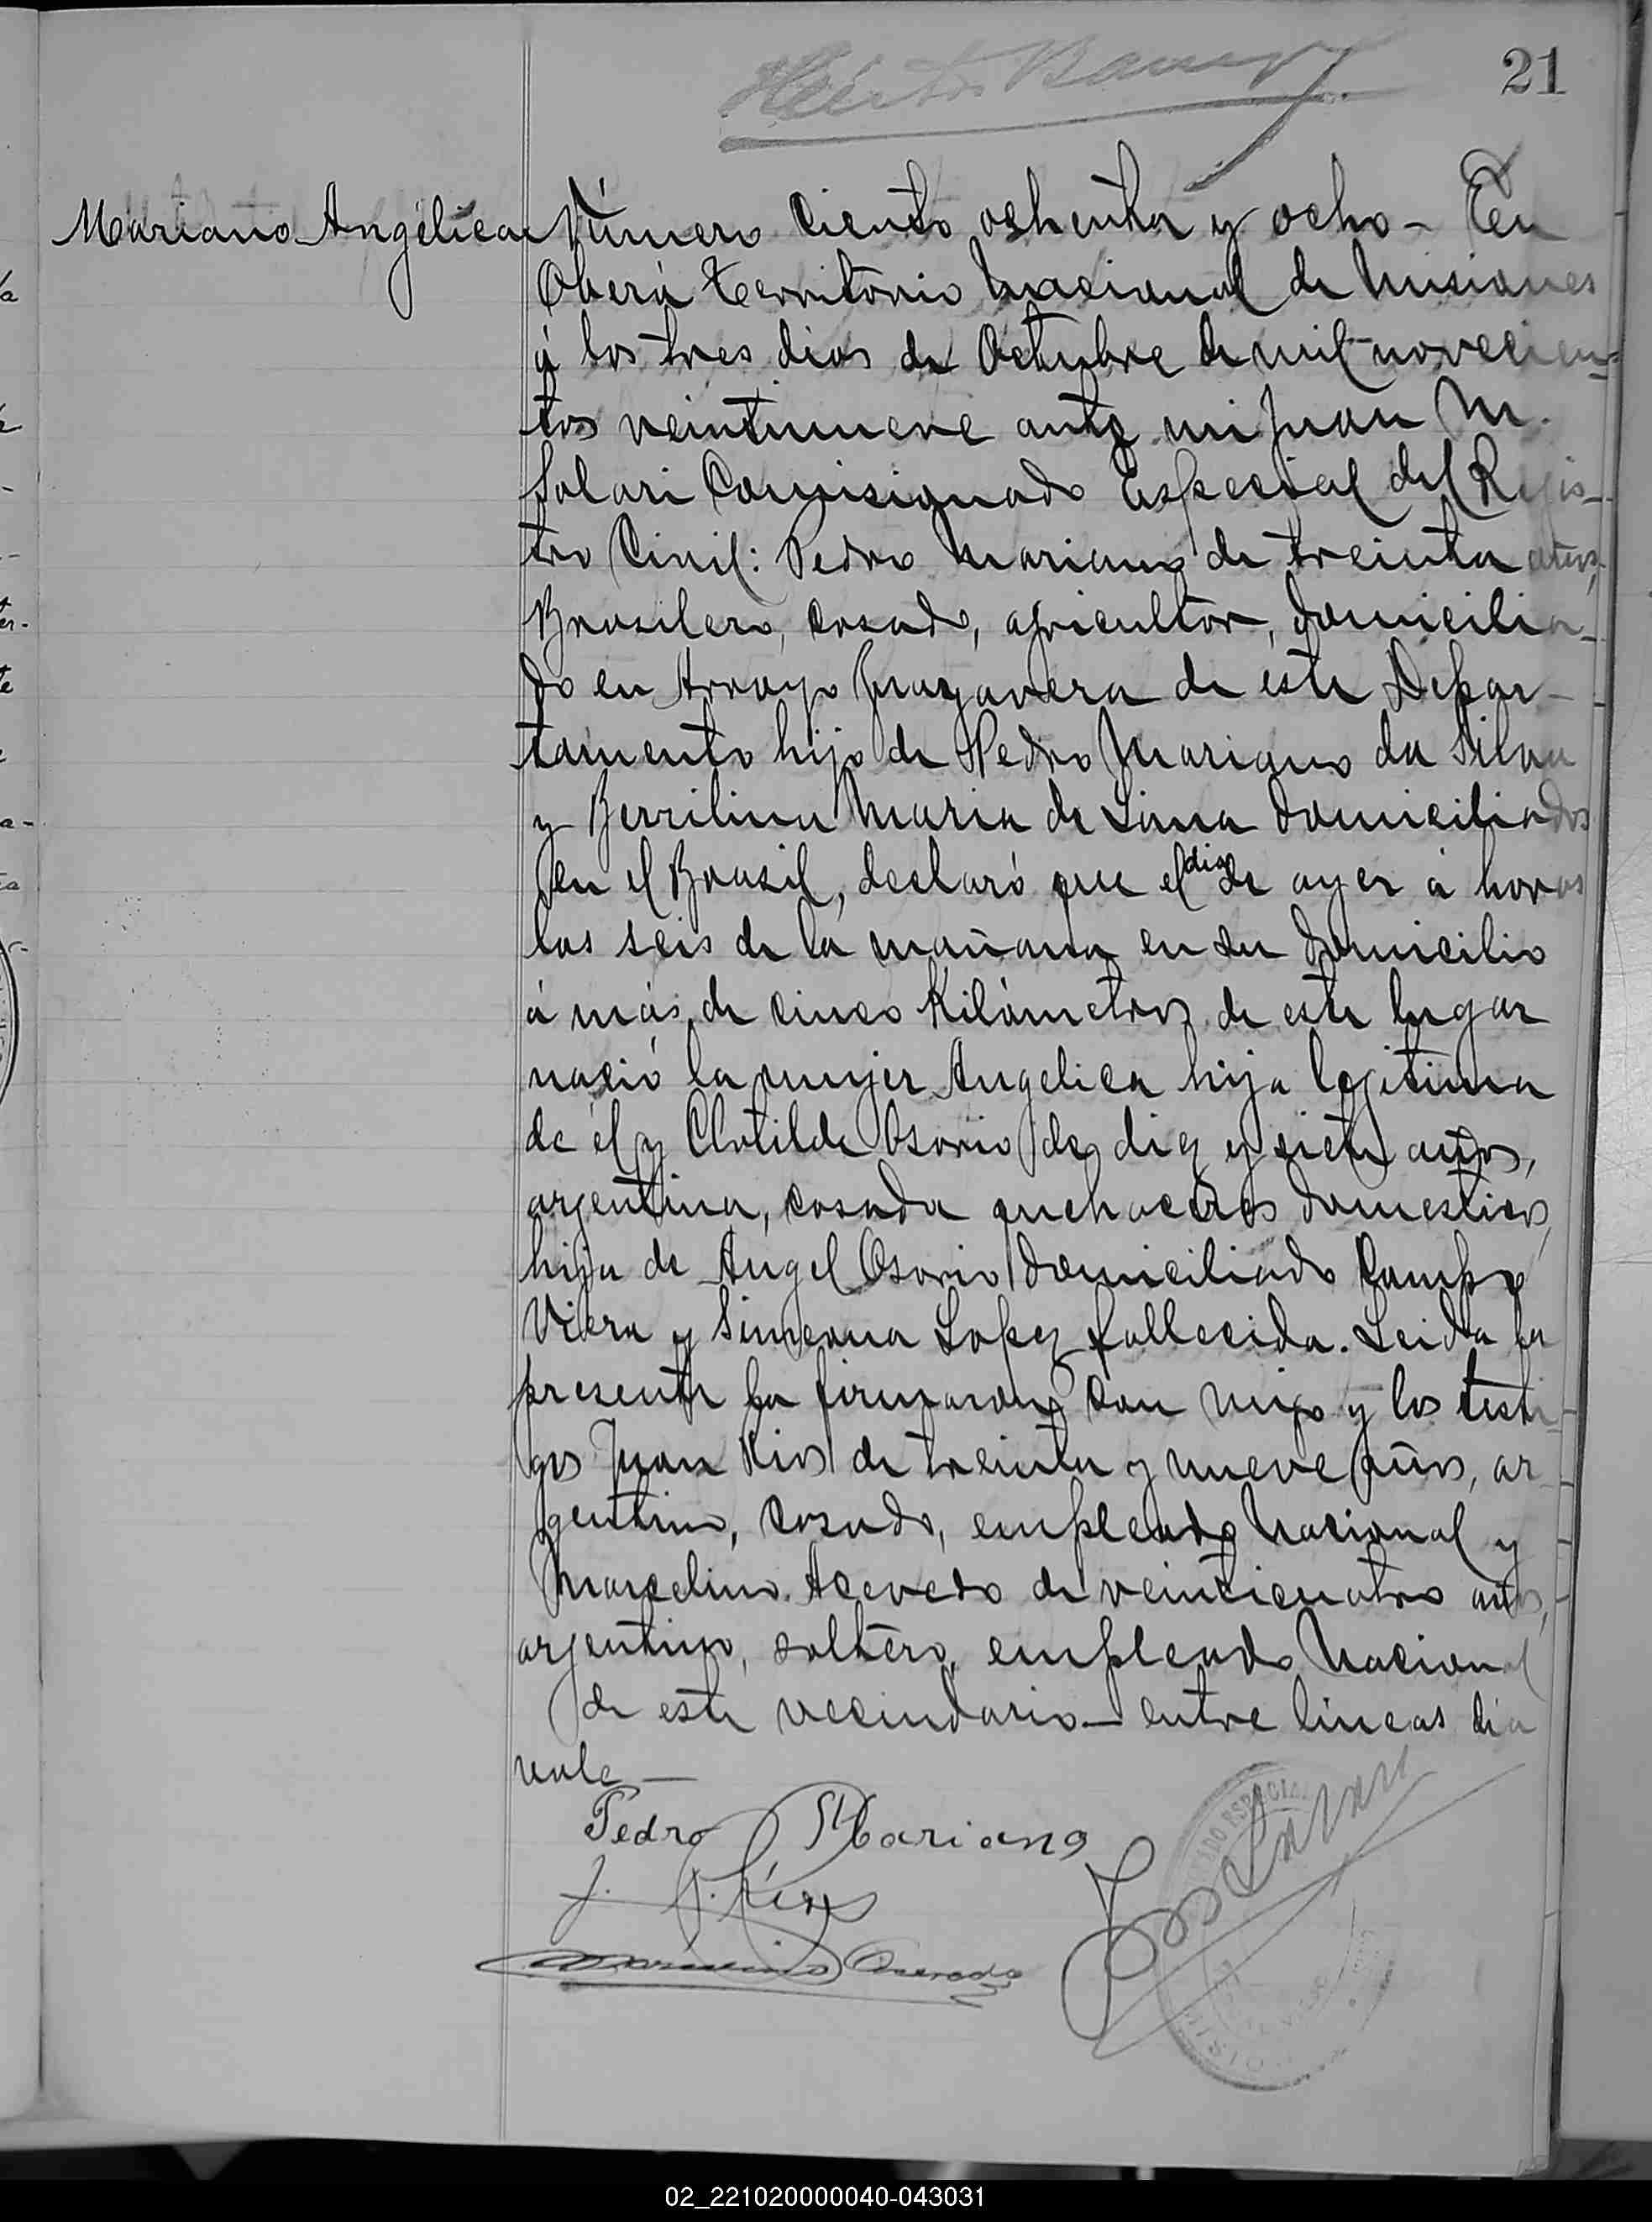 21
Mariano Angélica
Número ciento ochenta y ocho - En
Oberá territorio nacional de Misiones
á los tres dias de Octubre de mil novecien-
tos veintinueve ante mi Juan M.
Solari Comisionado Especial del Regis-
tro Civil: Pedro Mariano de treinta años,
Brasilero, casado, agricultor, domicilia-
do en Arroyo de este Depar-
tamento hijo de Pedro Mariano da Silva
y Maria de Lima domiciliados
en el Brasil, declaró que el dia de ayer á horas
las seis de la mañana en su domicilio
á más de cinco Kilómetros de este lugar
nació la mujer Angelica hija legitima
de él y Clotilde Osorio de diez y siete años,
argentina, casada quehaceres domesticos,
hija de Angel Osorio domiciliado Campo
Viera y Simeona Lopez fallecida. Leida la
presente la firmaron con migo y los testi-
gos Juan Rios de treinta y nueve años, ar-
gentino, casado, empleado Nacional y
Marcelino Acevedo de veinticuatro años,
argentino, soltero, empleado Nacional
de este vecindario - entre líneas dia
vale -
Pedro Mariano
J. Ríos
Marcelino Acevedo
02_221020000040-043031